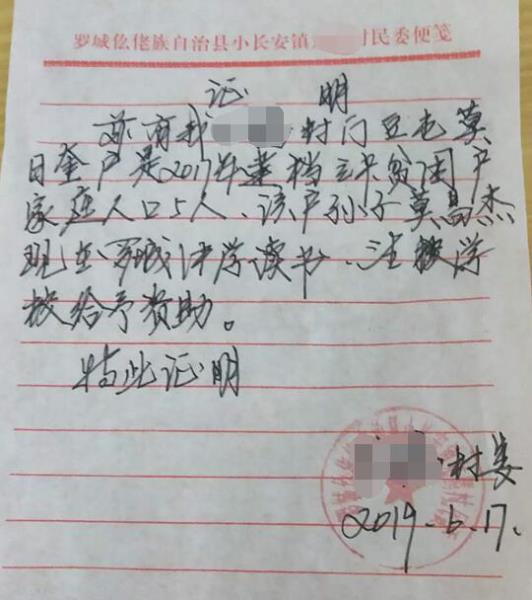 罗城仫佬族自治县小长安镇 村民委便笺
证 明
兹有我 村门豆屯莫
日奎户是2017年建档立卡贫困户
家庭人口5人、该户孙子莫昌杰
现在罗城中学读书、注校学
校给予资助。
特此证明
村委
2019.6.17.